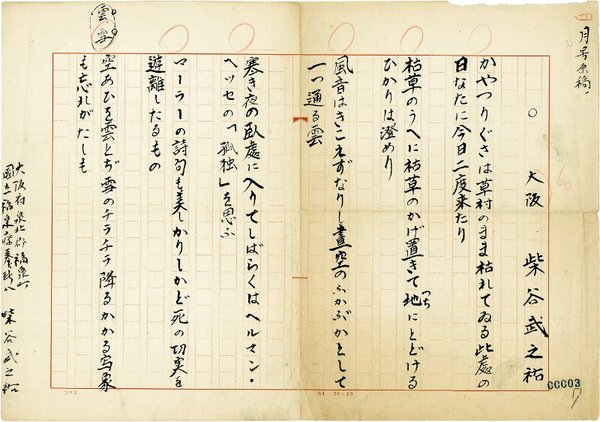 一月号原稿
○ 大阪 柴谷武之祐
かやつりぐさは草村のまま枯れてゐる此處の
日なたに今日二度来たり
枯草のうへに枯草のかげ置きて地にとどける
つち
ひかりは澄めり
風音はきこえずなりし晝空のふかぶかとして
一つ通る雲
寒き夜の臥處に入りてしばらくはヘルマン・
ヘッセの「孤独」を思ふ
ローラーの詩句も美しかりしかど死の切実を
遊離したるもの
空あひを雲とぢ雪のチラチラ降るかかる写象
も忘れがたしも
雲。雪。
大阪府泉北郡福泉町
柴谷武之祐
00003